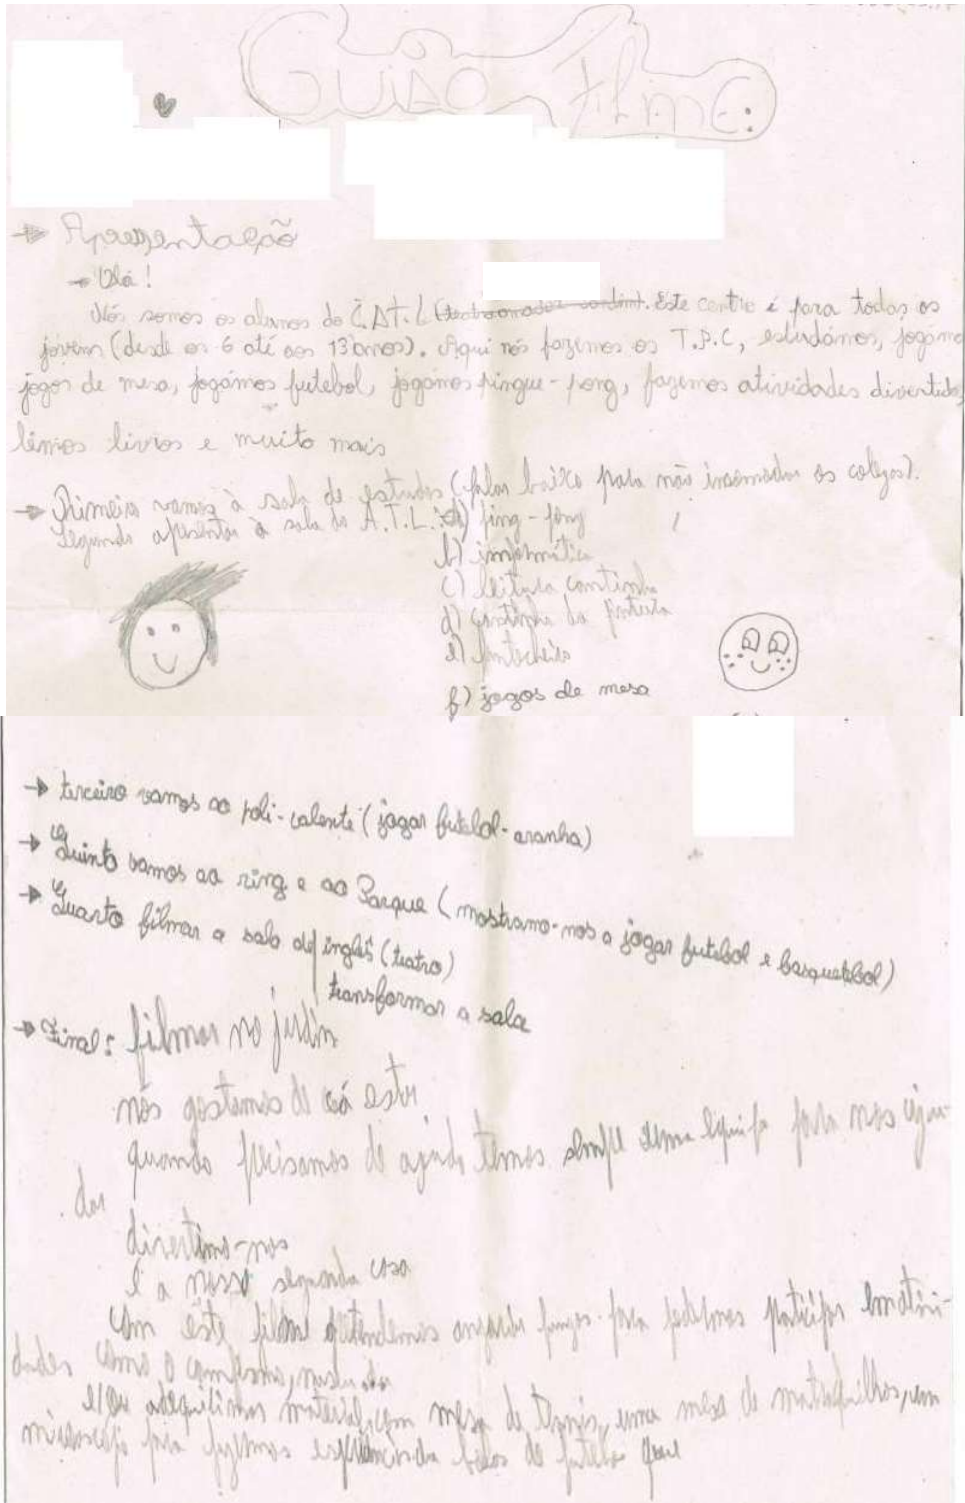 Guião Filme:
→ Apresentação
→ Olá!
Nós somos os alunos do C.A.T.L (teatro amador . Este centro é para todos os
jovens (desde os 6 até aos 13 anos). Aqui nós fazemos os T.P.C, estudámos, jogámo
jogos de mesa, jogámos futebol, jogámos pingue-pong, fazemos atividades divertidas,
lêmos livros e muito mais
→ Primeiro vamos à sala de estudos (falar baixo para não incomodar os colegas).
Segundo apresentar à sala do A.T.L.: a) ping-pong
b) informática
c) leitura cantinho
d) cantinho da pintura
e)
f) jogos de mesa
→ terceiro vamos ao poli-valente (jogar futebol-aranha)
→ Quinto vamos ao ring e ao Parque (mostramo-nos a jogar futebol e basquetebol)
→ Quarto filmar a sala de inglês (teatro)
transformar a sala
→ Final: filmar no jardim
nós gostamos de cá estar
quando precisamos de ajuda temos sempre uma equipa para nos aju-
dar
divertimo-nos
é a nossa segunda casa
com este filme pretendemos angariar para podermos participar em ativi-
dades como o
e adequirimos material, com mesa de tenis, uma mesa de matraquilhos, um
bolas de futebol que